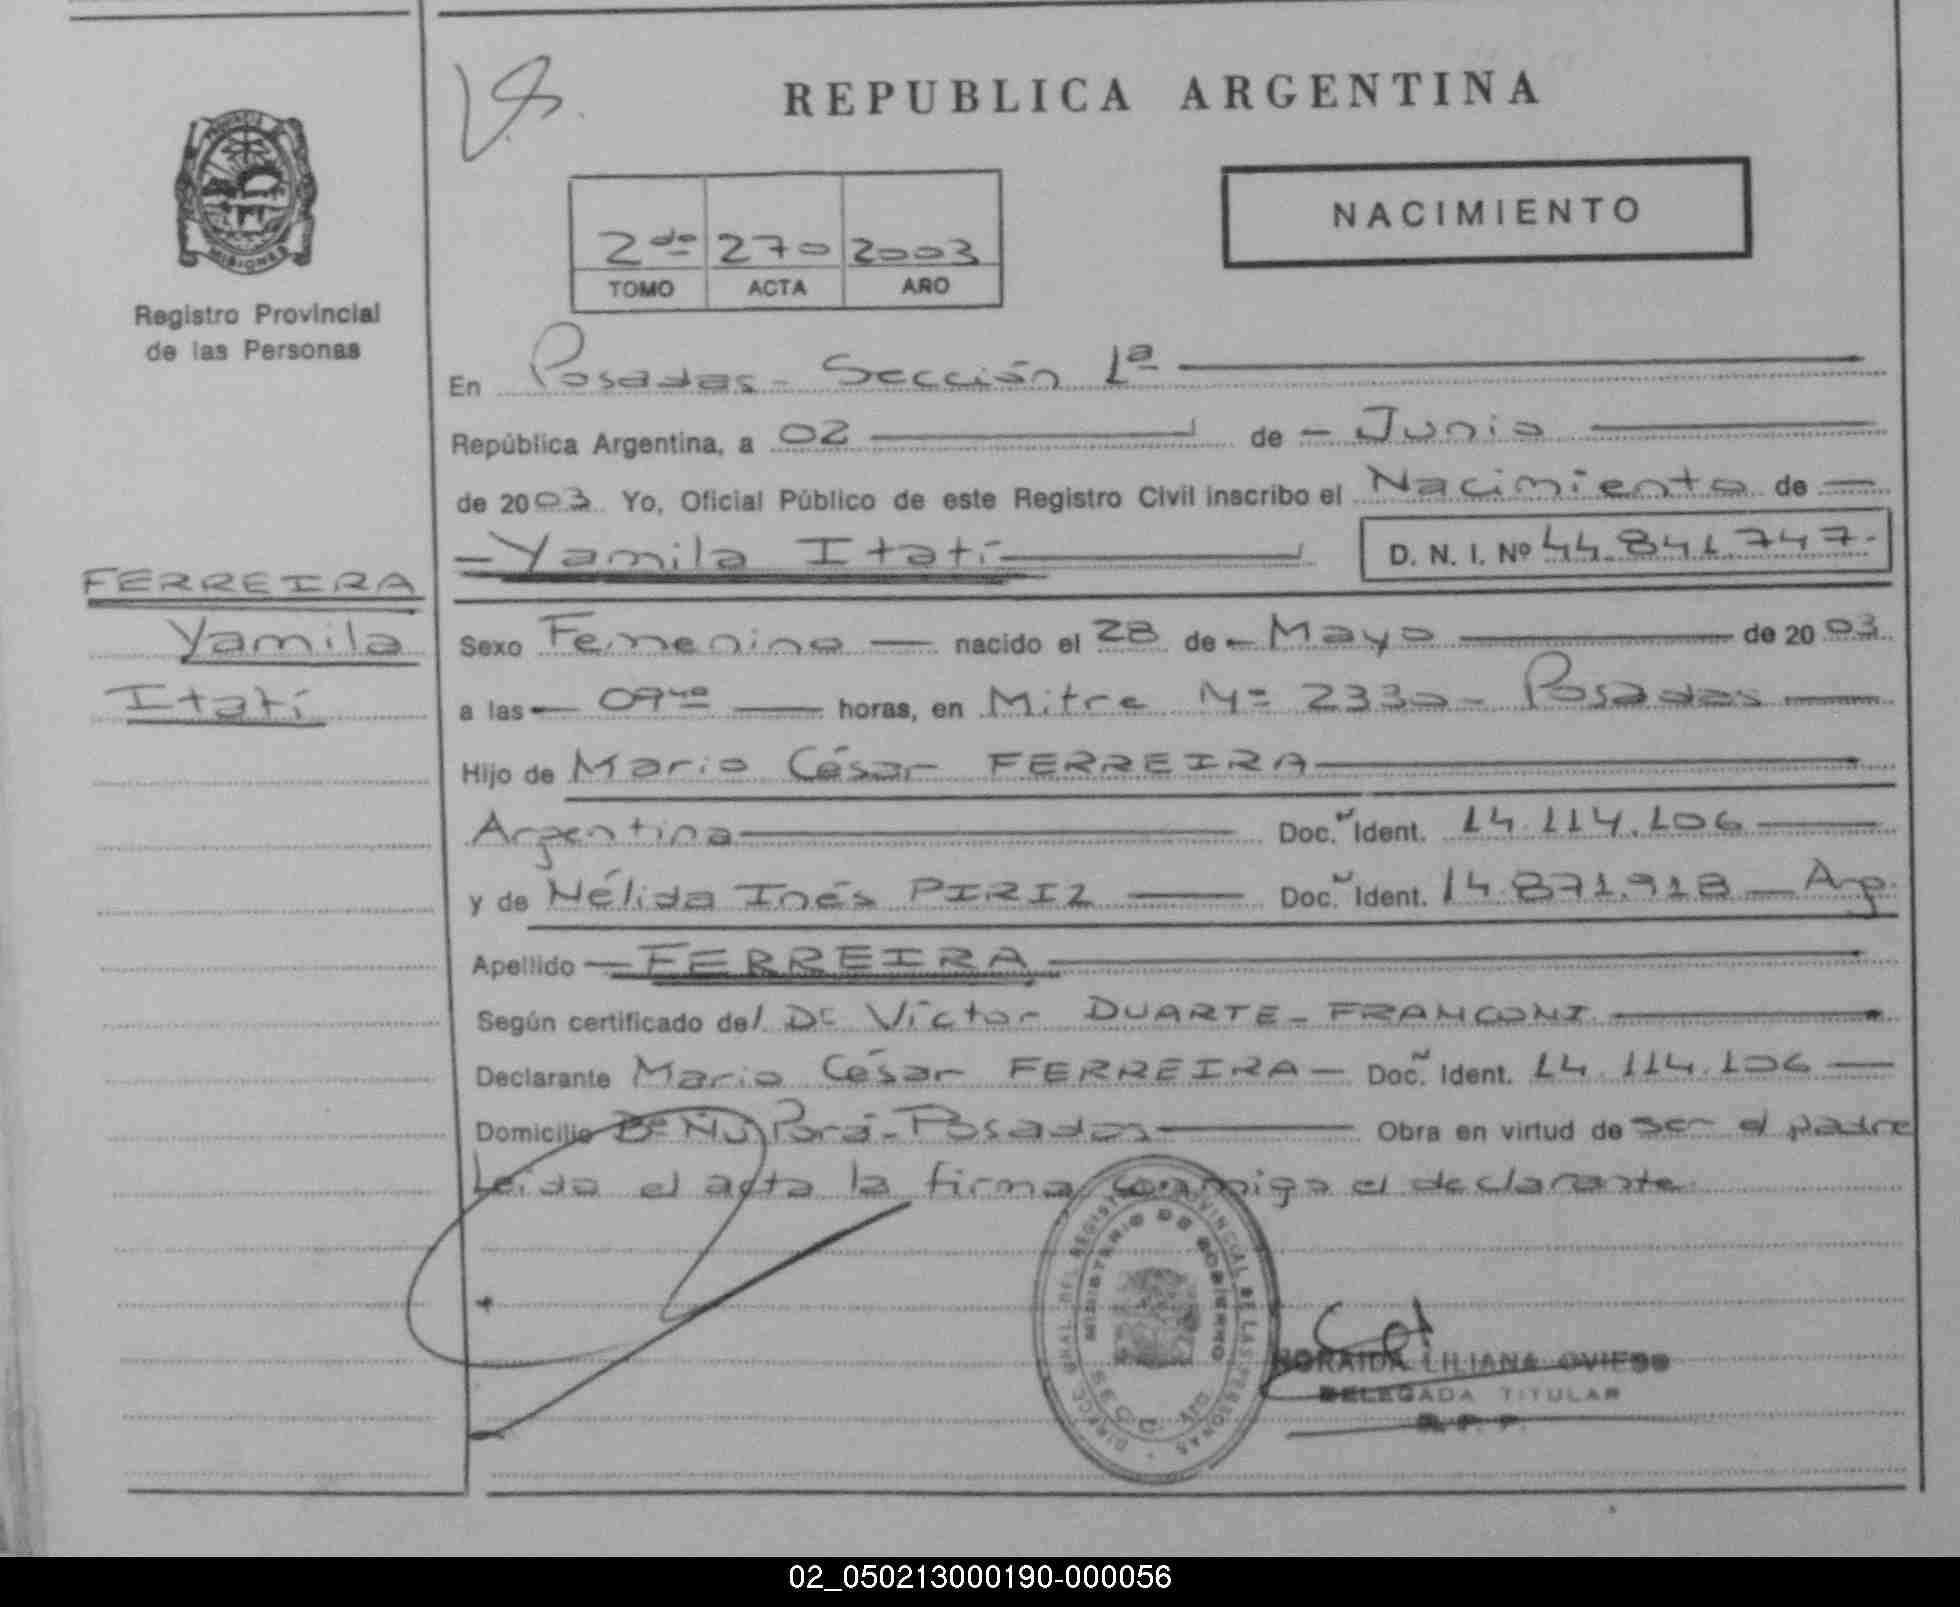 REPUBLICA ARGENTINA
NACIMIENTO
2do 270 2003
TOMO ACTA AÑO
PROVINCIA
MISIONES
Registro Provincial
de las Personas
FERREIRA
Yamila
Itatí
En Posadas - Sección 1ª
República Argentina, a 02 de - Junio
de 2003. Yo, Oficial Público de este Registro Civil inscribo el Nacimiento de
Yamila Itatí D. N. I. Nº 44.841.747.-
Sexo Femenino nacido el 28 de Mayo de 2003
a las 09 horas, en Mitre Nº 2330 - Posadas
Hijo de Mario César FERREIRA
Argentina Doc. Ident. 14.114.106
y de Nélida Inés PIRIZ Doc. Ident. 14.871.918 - Arg.
Apellido FERREIRA
Según certificado del Dr Víctor DUARTE - FRANCONI
Declarante Mario César FERREIRA - Doc. Ident. 14.114.106
Domicilio Bº Ñu Porá - Posadas Obra en virtud de ser el padre
Leida el acta la firma conmigo el declarante.
DIRECC. GRAL. DEL REGISTRO PROVINCIAL DE LAS PERSONAS
MINISTERIO DE GOBIERNO
LILIANA OVIEDO
DELEGADA TITULAR
R. P. P.
02_050213000190-000056